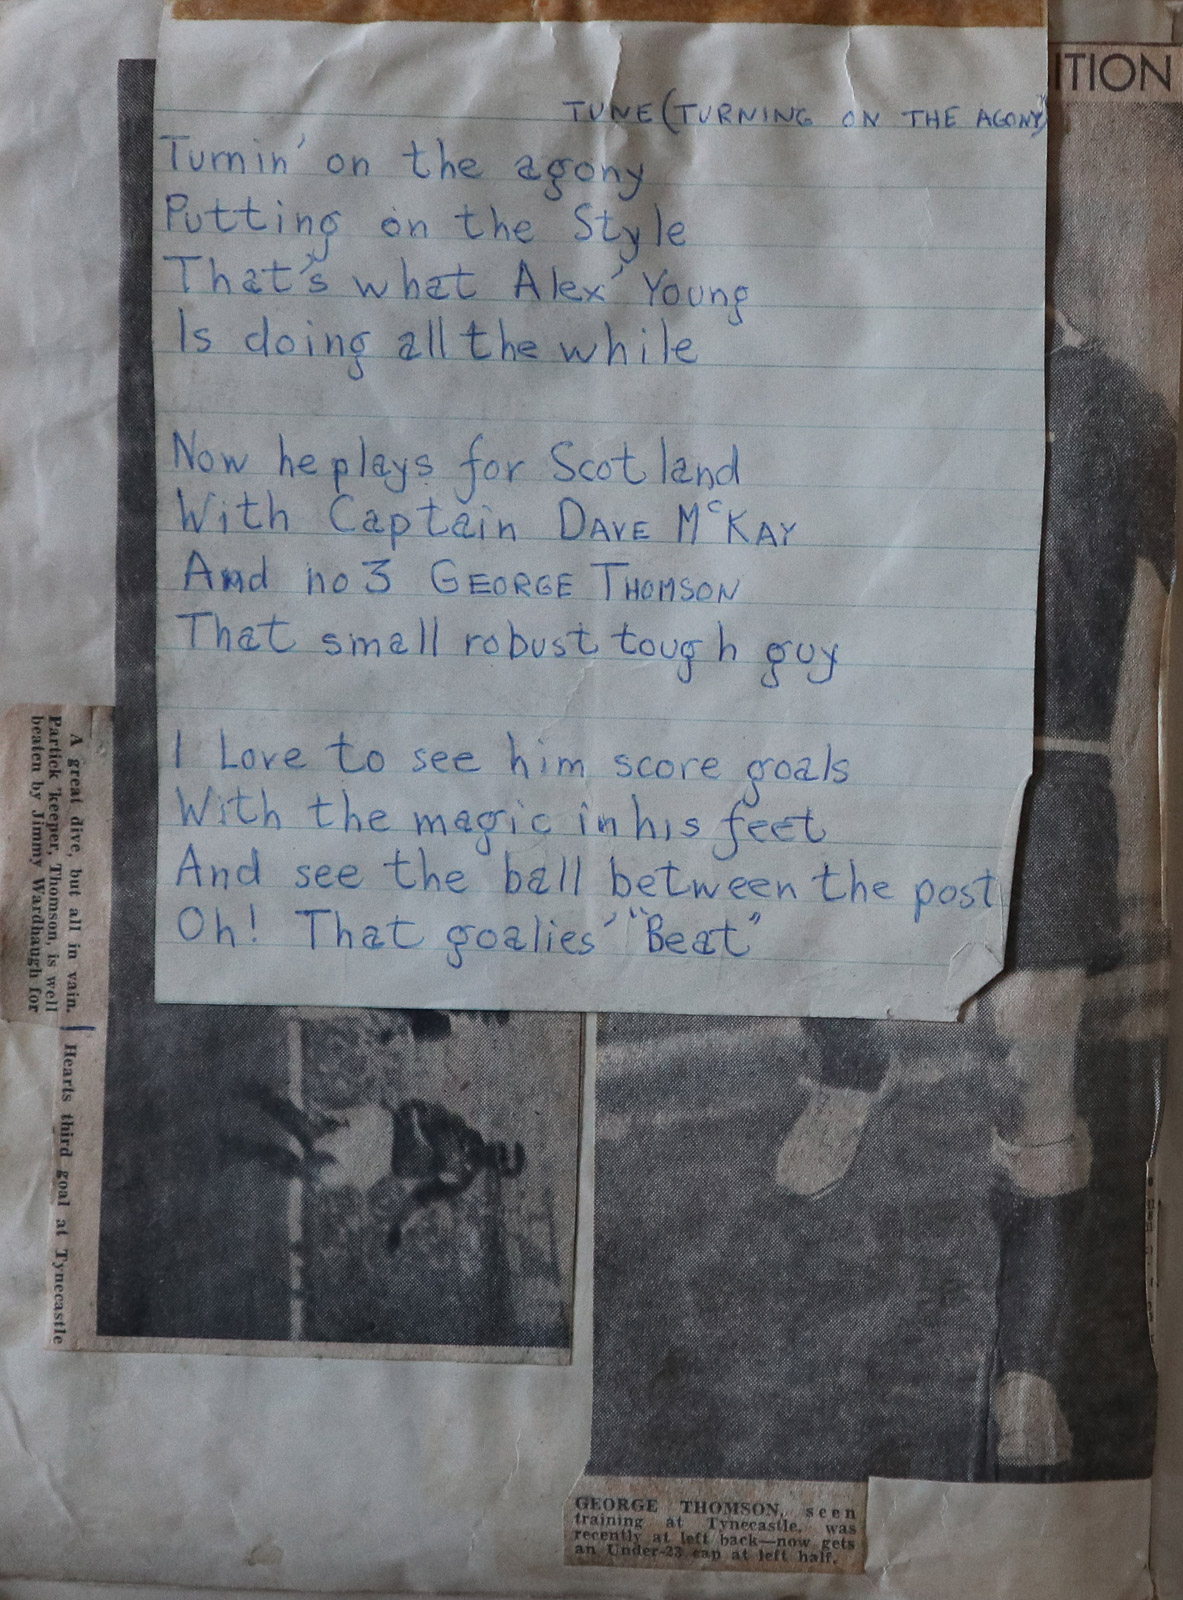 ITION
TUNE (TURNING ON THE AGONY)
Turnin' on the agony
Putting on the Style
That's what Alex' Young
Is doing all the while
Now he plays for Scotland
With Captain DAVE McKAY
And no 3 GEORGE THOMSON
That small robust tough guy
I Love to see him score goals
With the magic in his feet
And see the ball between the post
Oh! That goalies' "Beat"
A great dive, but all in vain.
Partick 'keeper, Thomson, is well
beaten by Jimmy Wardhaugh for
Hearts third goal at Tynecastle
GEORGE THOMSON, seen
training at Tynecastle, was
recently at left back—now gets
an Under-23 cap at left half.